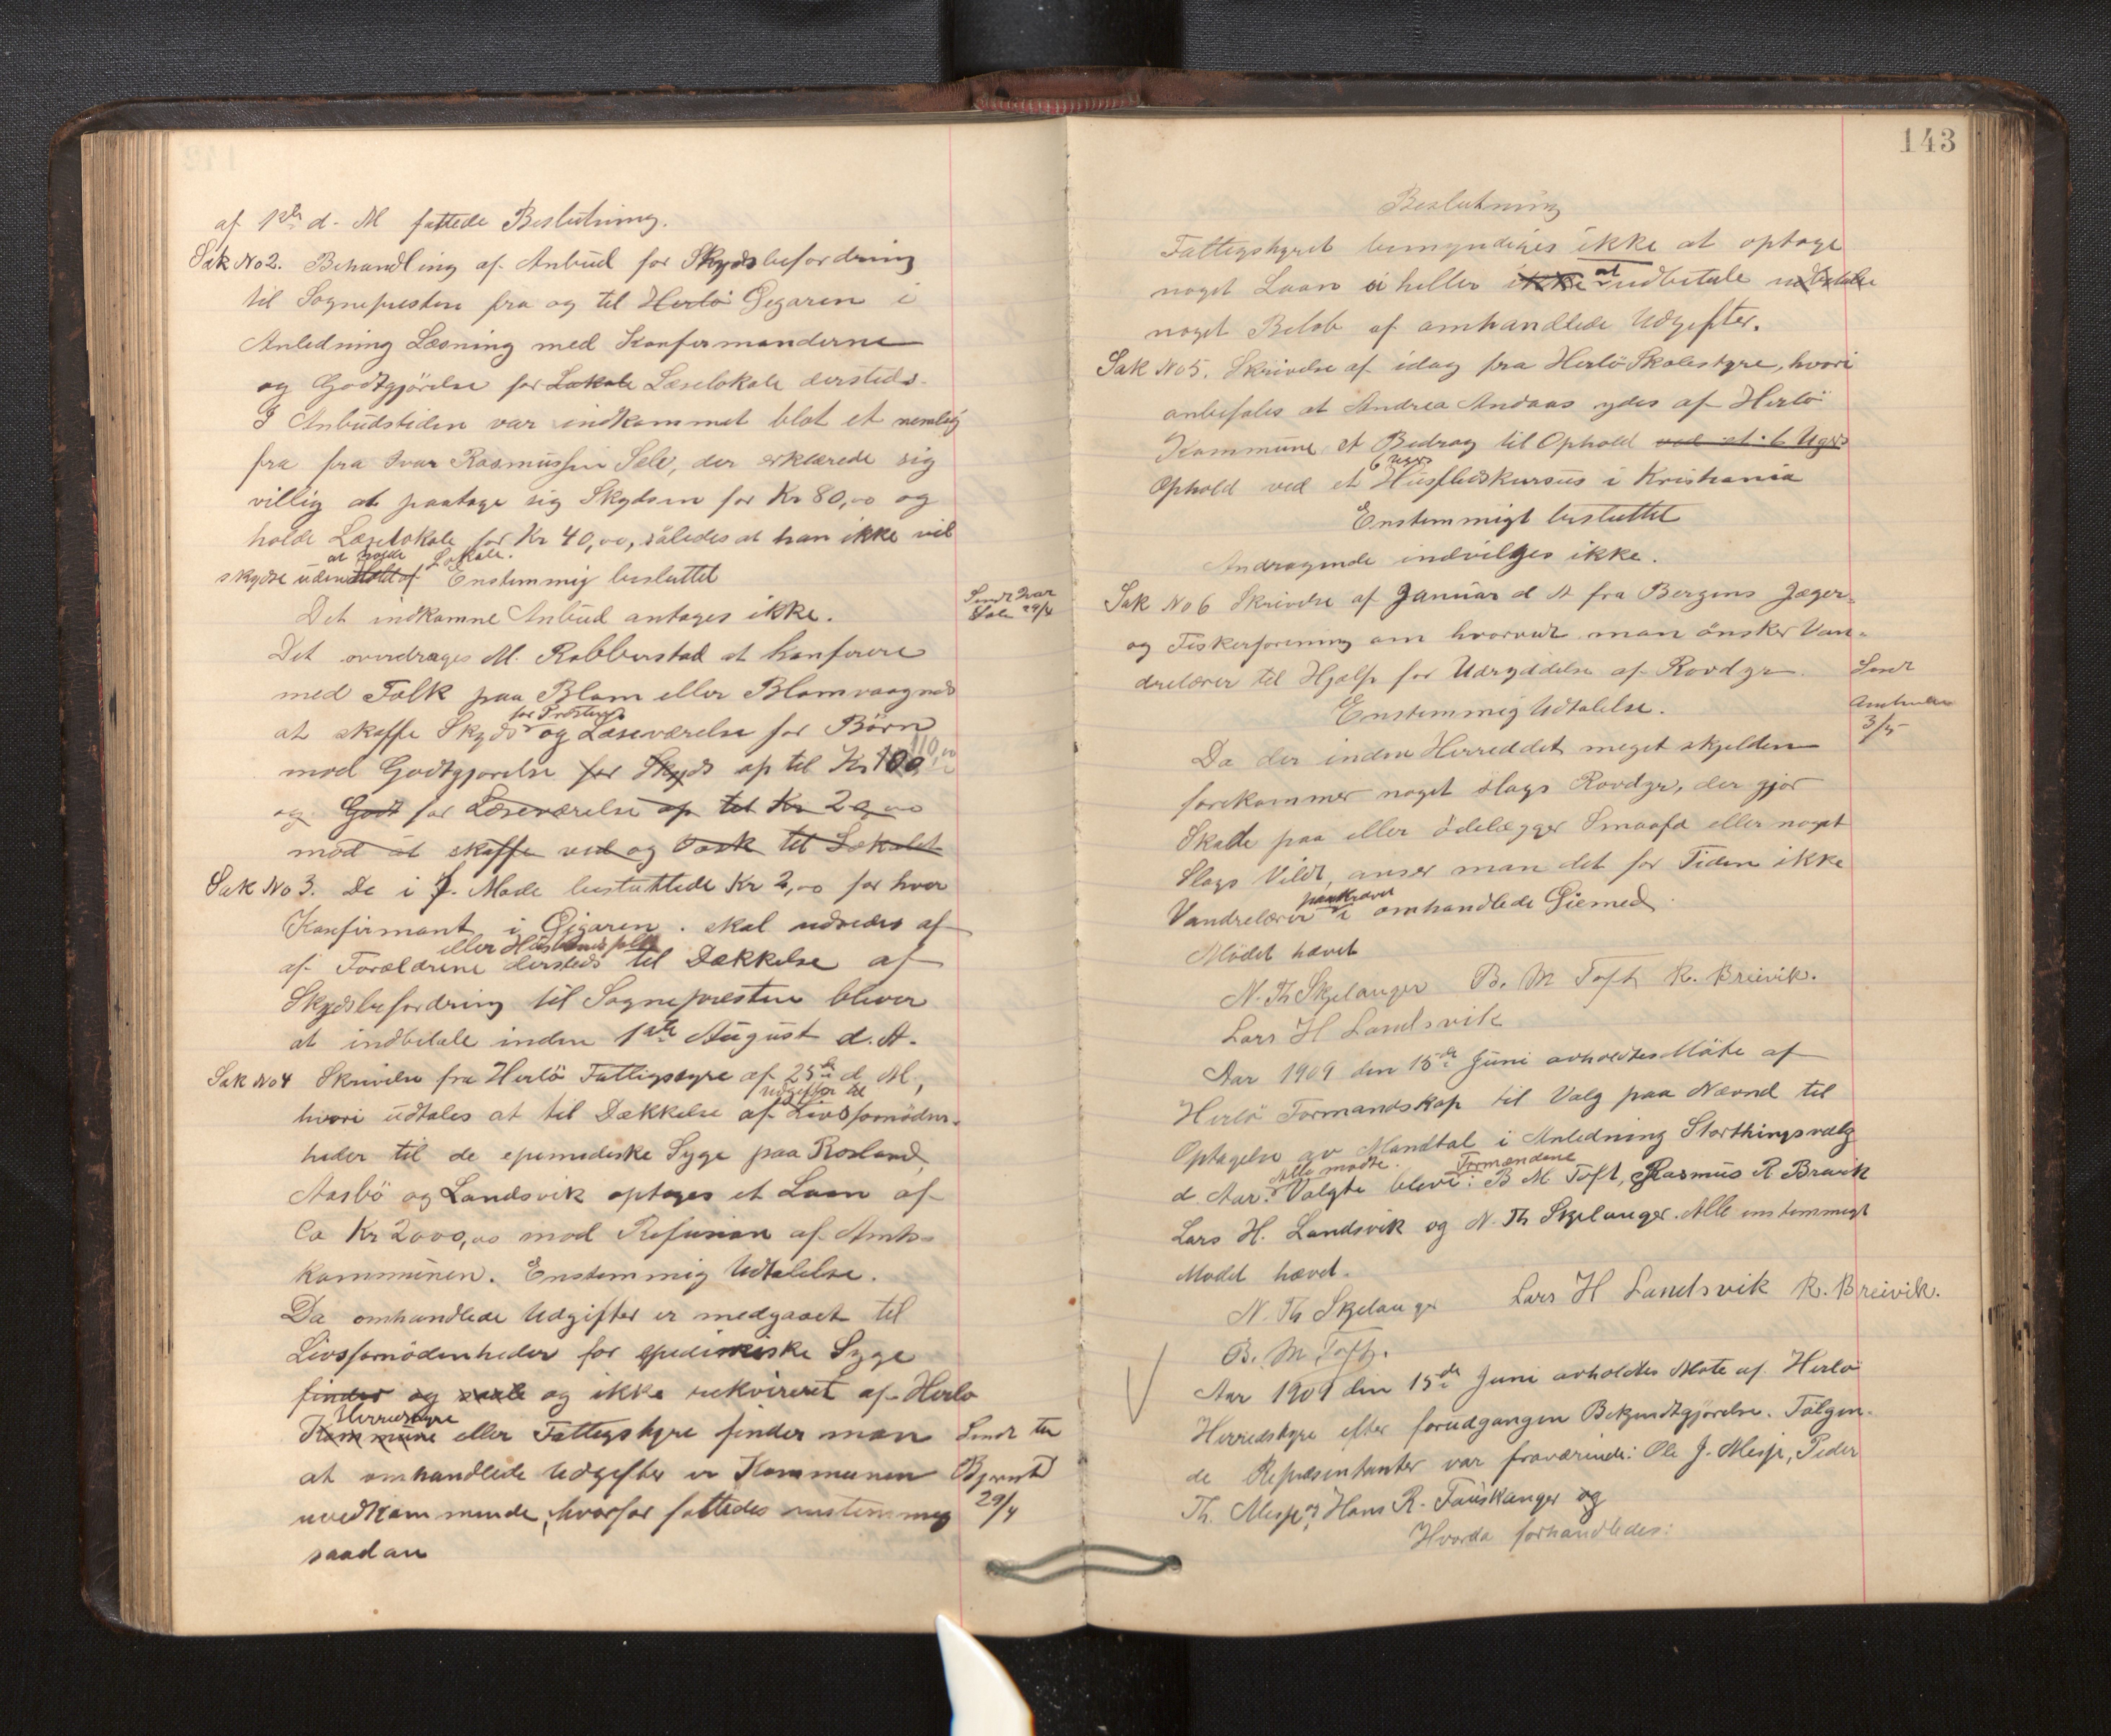 af 1ste d. M fattede Beslutning.
Sak No 2. Behandling af Anbud for Skydsbefordring
til Sognepresten fra og til Herlö Øegaren i
Anledning Læsning med Konfirmanderne
og Godtgjörelse for Lokale Læselokale dersteds.
I Anbudstiden var indkommet blot et nemlig
fra fra Ivar Rasmussen Sele, der erklærede sig
villig at paatage sig Skydsen for Kr 80,00 og
holde Læselokale for Kr 40,00, således at han ikke vil
at holde Lokale.
skydse uden Enstemmig besluttet
Det indkomne Anbud antages ikke.
Sendt Ivar
Sele 29/4
Det overdrages M. Rabberstad at konferere
med Folk paa Blom eller Blomvaagnes
for Presten
at skaffe Skyds og Læseværelse for Börn
mod Godtgjørelse for Skyds op til Kr 100 110,00
og Godt for Læseværelse op til Kr 20,00
mod at skaffe ved og Vask til Lokalet
Sak No 3. De i f. Møde besluttede Kr 2,00 for hver
Konfirmant i Øigaren skal udredes af
eller Husbondsfolk
af Forældrene dersteds til Dækkelse af
Skydsbefordring til Sognepresten bliver
at indbetale inden 1ste August d. A.
Sak No 4 Skrivelse fra Herlö Fattigstyre af 25de d. M,
Udgifter til
hvori udtales at til Dækkelse af Livsfornöden-
heder til de epemediske Syge paa Rosland,
Aasbö og Landsvik optages et Laan af
Ca Kr 2000,00 mod Refusion af Amts-
kommunen. Enstemmig Udtalelse.
Da omhandlede Udgifter er medgaaet til
Livsfornödenheder for epedimiske Syge
finder og og ikke rekvireret af Herlo
Herredstyre
Kommune eller Fattigstyre finder man
at omhandlede Udgifter er Kommunen
uvedkommende, hvorfor fattedes enstemmig
saadan
Sendt
29/4
143
Beslutning
Fattigstyret bemyndiges ikke at optage
noget Laan ei heller ikke at udbetale udbetale
noget Belöb af omhandlede Udgifter.
Sak No 5. Skrivelse af idag fra Herlö Skolestyre, hvori
anbefales at Andrea Andaas ydes af Herlö
Kommune et Bedrag til Ophold ved et 6 Ugers
6 Ugers
Ophold ved et Husflidskursus i Kristiania
Enstemmigt besluttet
Andragende indvilges ikke.
Sak No 6 Skrivelse af Januar d A fra Bergens Jæger-
og Fiskerforening om hvorvidt man önsker Van-
drelærer til Hjælp for Udryddelse af Rovdyr.
Sendt
Amtmanden
3/5
Enstemmig Udtalelse.
Da der inden Herreddet meget skjelden
forekommer noget slags Rovdyr, der gjör
Skade paa eller ödelægger Smaafæ eller noget
Slags Vildt, anser man det for Tiden ikke
paakrævet
Vandrelærer i omhandlede Øiemed.
Mödet hævet
N. Th Skjelanger B. M Toft R. Breivik.
Lars H Landsvik
Aar 1909 den 15de Juni avholdtes Möte af
Herlö Formandskap til Valg paa Nævnd til
Optagelse av Mandtal i Anledning Storthingsvalg
Alle mødte. Formændene
d. Aar. Valgte blev: B M Toft, Rasmus R Bravik
Lars H. Landsvik og N. Th Skjelanger. Alle enstemmigt
Mödet hævet.
N. Th Skjelanger Lars H Landsvik R. Breivik.
B. M Toft.
Aar 1909 den 15de Juni avholdtes Möte af Herlö
Herredstyre efter forudgangen Bekjendtgjörelse. Fölgen-
de Repræsentanter var fraværende: Ole J. Misje, Peder
Th. Misje og Hans R. Fauskanger og
Hvorda forhandledes: